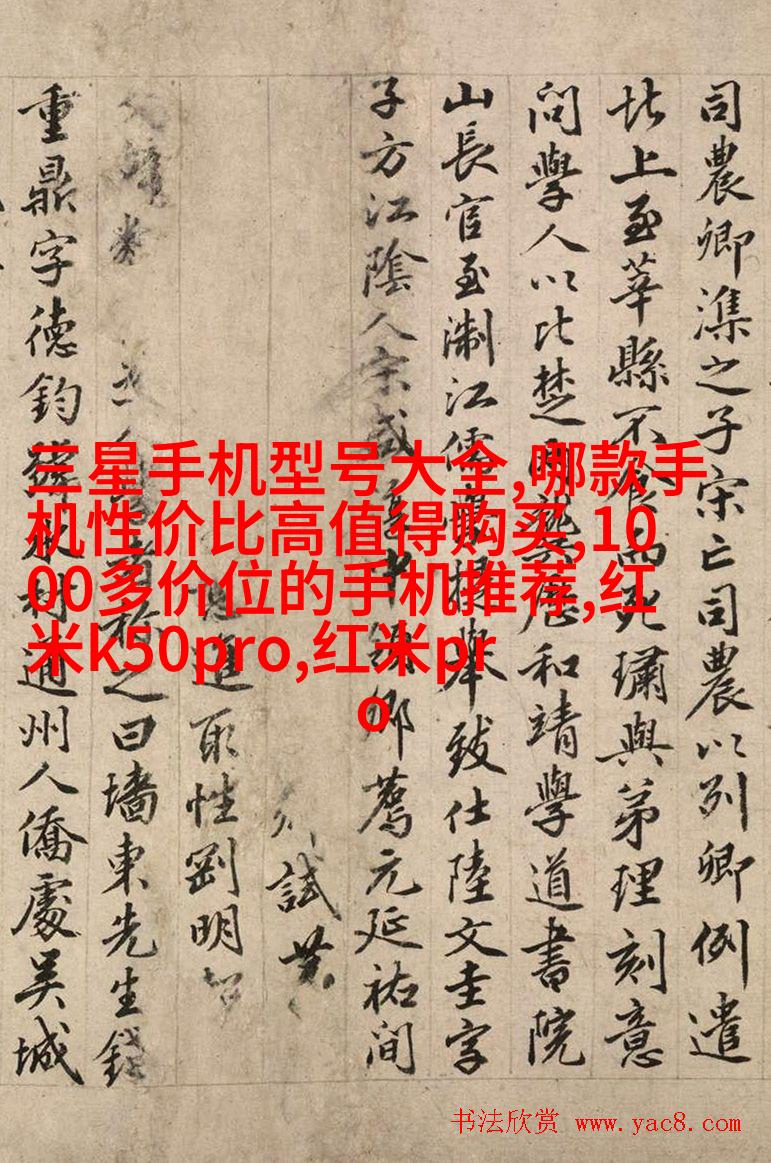 司農卿潗之子宋亡司農以列卿例遣
北上至莘縣不食而死璛與弟理刻意
問學人以比楚兩龔歷和靖學道書院
山長官至淛江儒學提舉致仕陸文圭字
子方江陰人宋咸淳中鄉薦元延祐間
試
取性剛明
之曰墻東先生錢
重鼎字德鈞通州人僑處吴城
三星手机型号大全,哪款手
机性价比高值得购买,10
00多价位的手机推荐,红
米k50pro,红米pr
o
书法欣赏 www.yac8.com